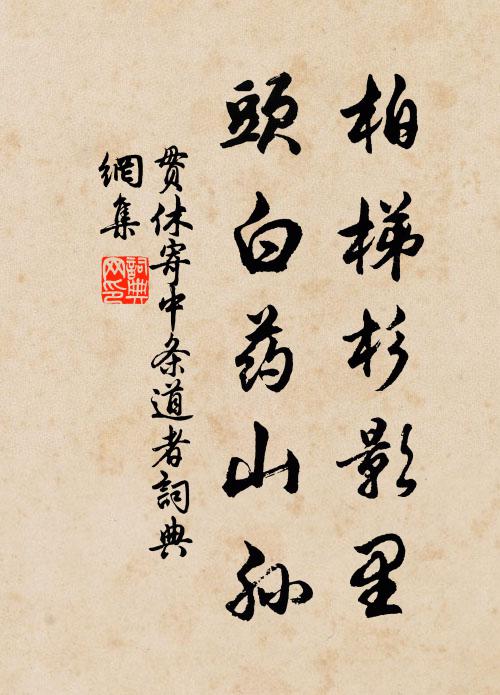 柏梯杉影里
頭白药山孙
贯休寄中条道者詞典
網集
詞典
网印